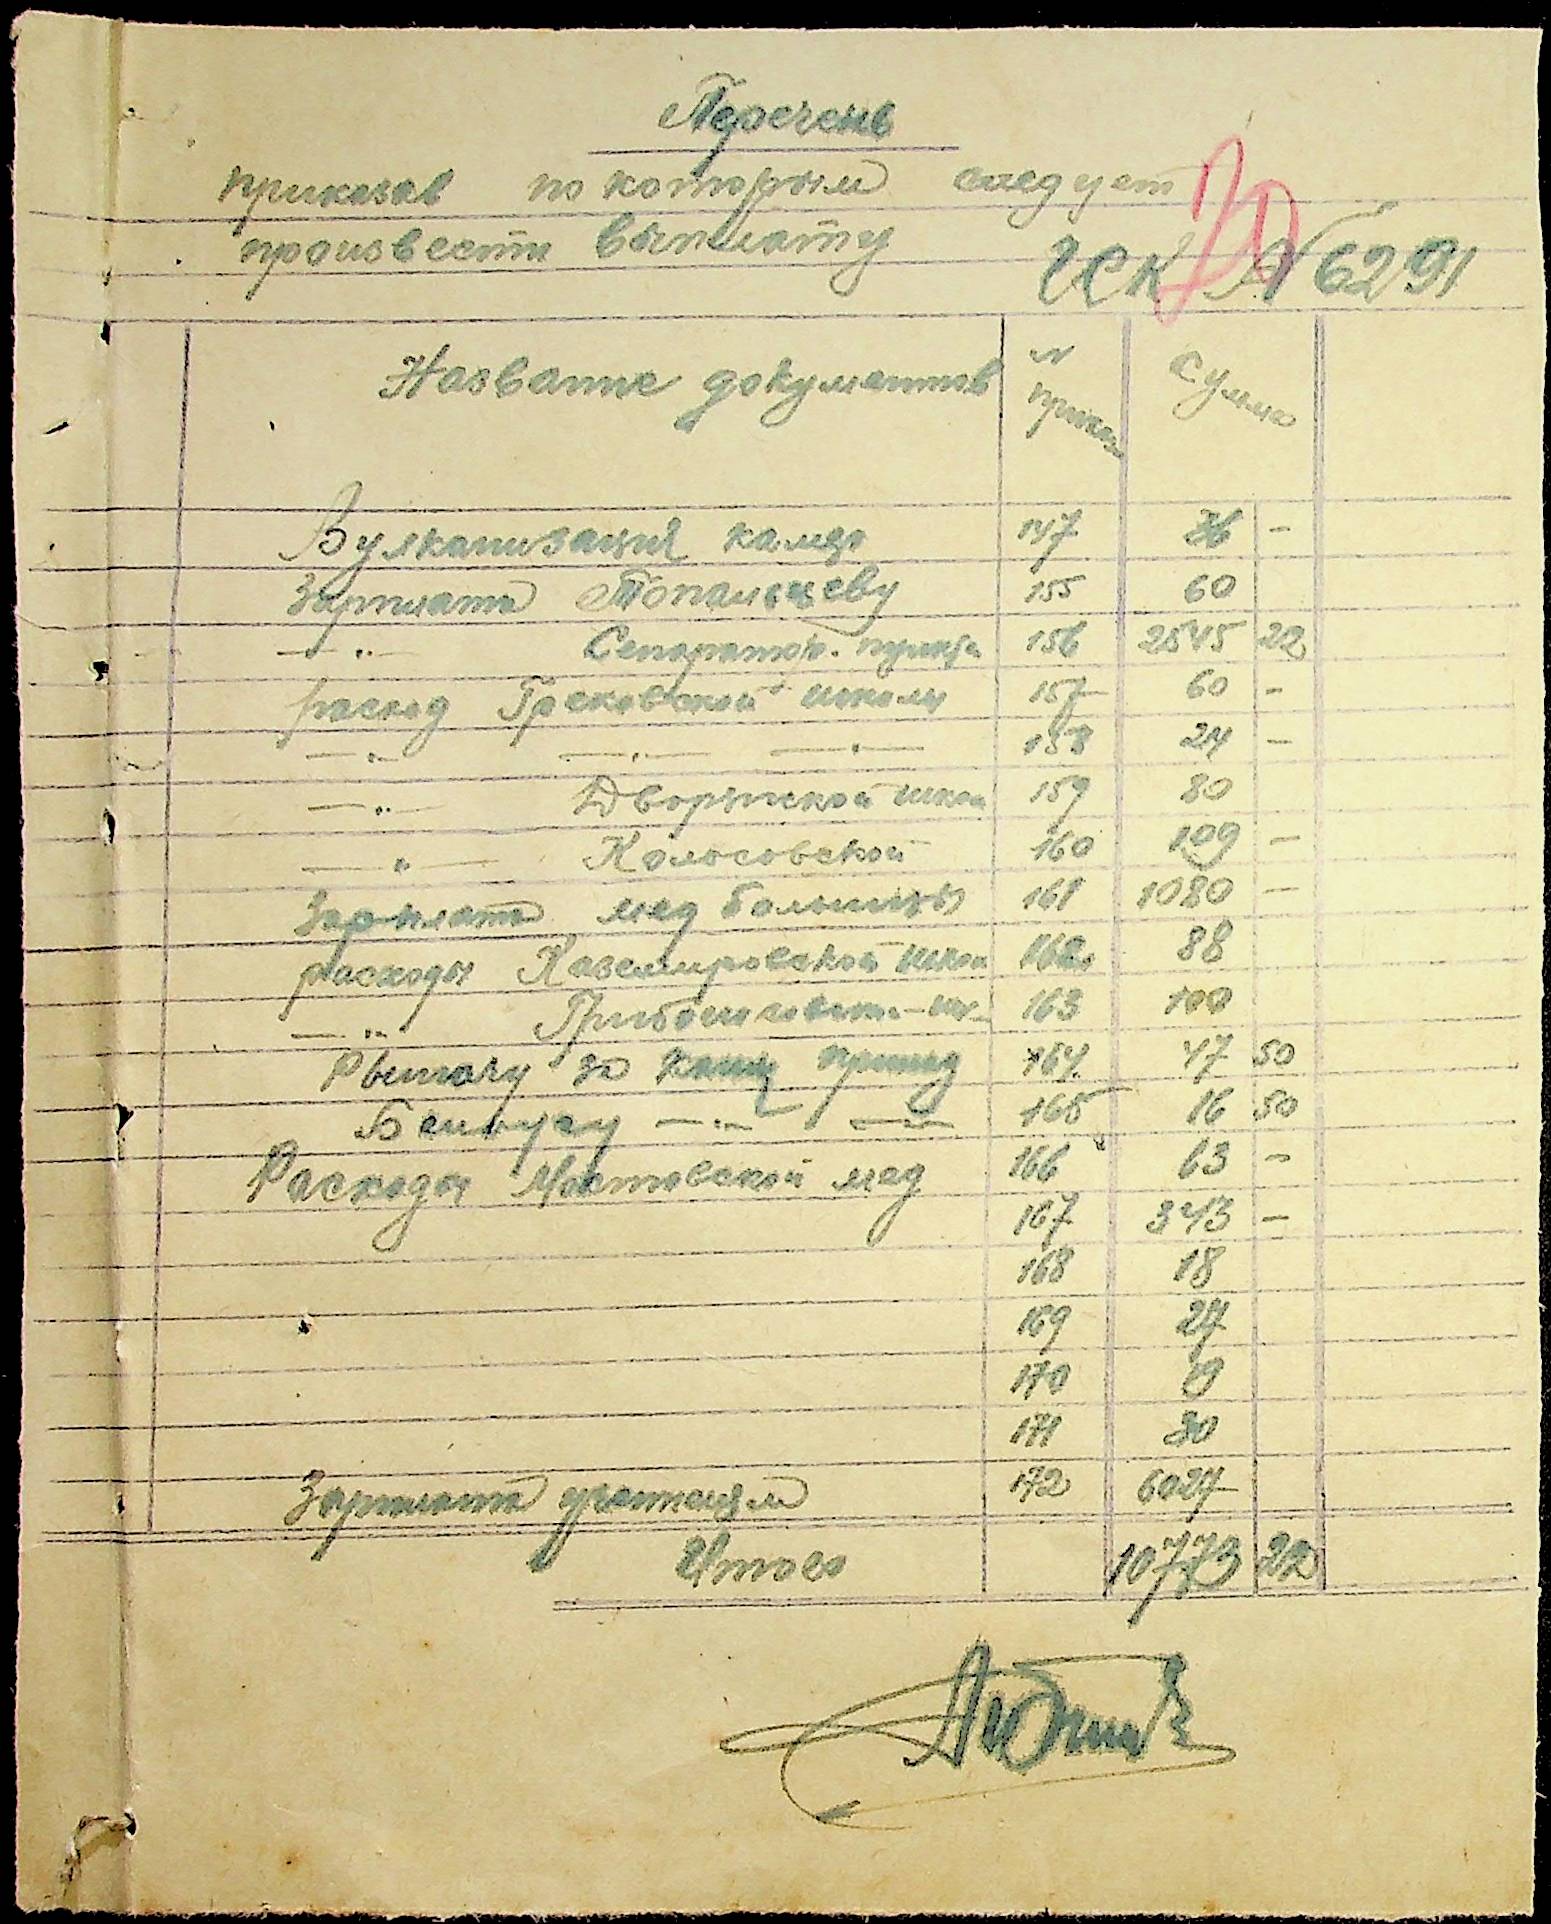 Перечень
приказов по которым следует
произвести выплату
70
ЧЕК № 6291
Название документов № приказа Сумма
Вулканизация камер 147 36 -
Зарплата 155 60
—"— Сепаратор. пункта 156 2545 22
расход Грековской школы 157 60 -
—"— —"— —"— 158 24 -
—"— Дворянской школ 159 80
—"— Колосовской 160 109 -
Зарплата мед больницы 161 1080 -
расходы Каземировской школ 162 88
—"— 163 100
за конц 164 47 50
Белоусу —"— — 165 16 50
Расходы Мостовской мед 166 63 -
167 343 -
168 18
169 27
170 19
171 30
Зарплата учителям 172 6027
Итого 10773 22